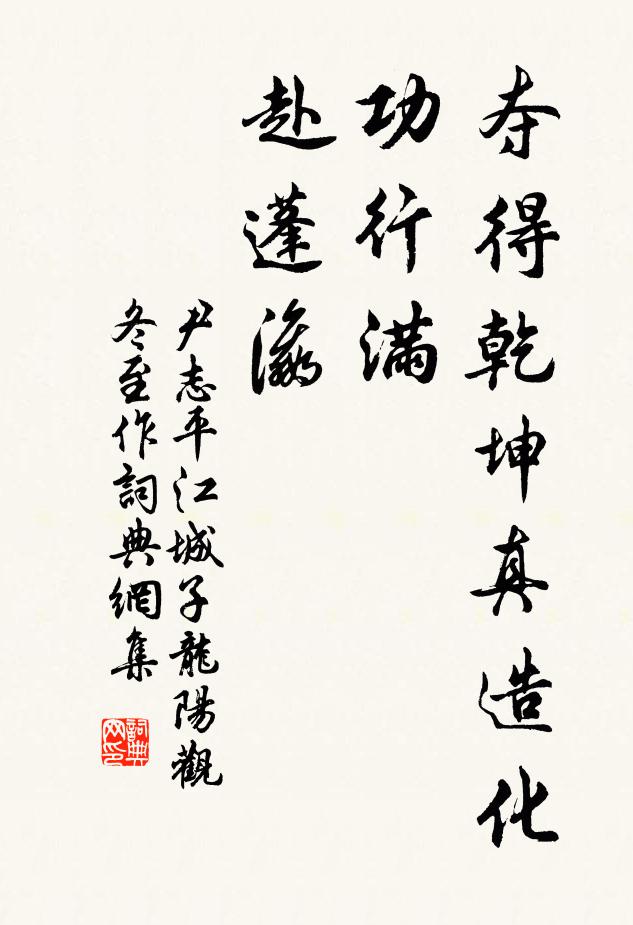 夺得乾坤真造化
功行满
赴蓬瀛
尹志平江城子龍陽觀
冬至作詞典網集
詞典
网印